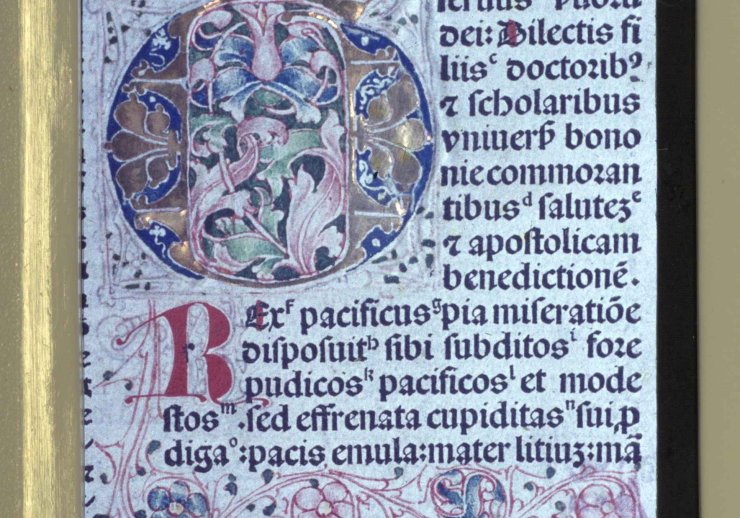 dei: Dilectis fi
liisᶜ doctoribꝰ
⁊ scholaribus
vniuerẞ bono
nie commoran
tibusᵈ salutezᵉ
⁊ apostolicam
benedictionē.
RExᶠ pacificusᵍ pia miseratiōe
disposuitʰ sibi subditosⁱ fore
pudicosᵏ pacificosˡ et mode
stosᵐ. sed effrenata cupiditasⁿ sui ꝓ
digaᵒ: pacis emula: mater litiuꝫ: mā